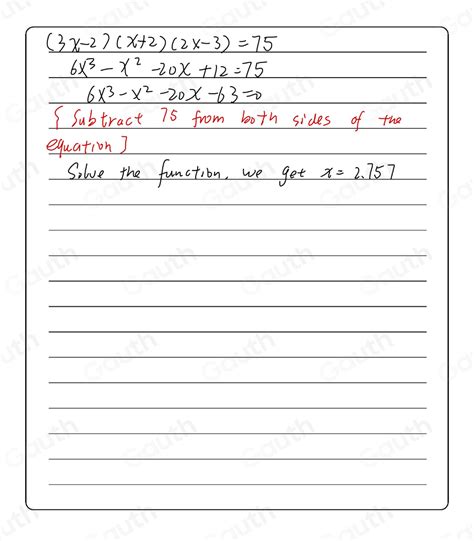 (3x-2)(x+2)(2x-3)=75
6x³-x²-20x+12=75
6x³-x²-20x-63=0
{Subtract 75 from both sides of the
equation]
Solve the function, we get x=2.757